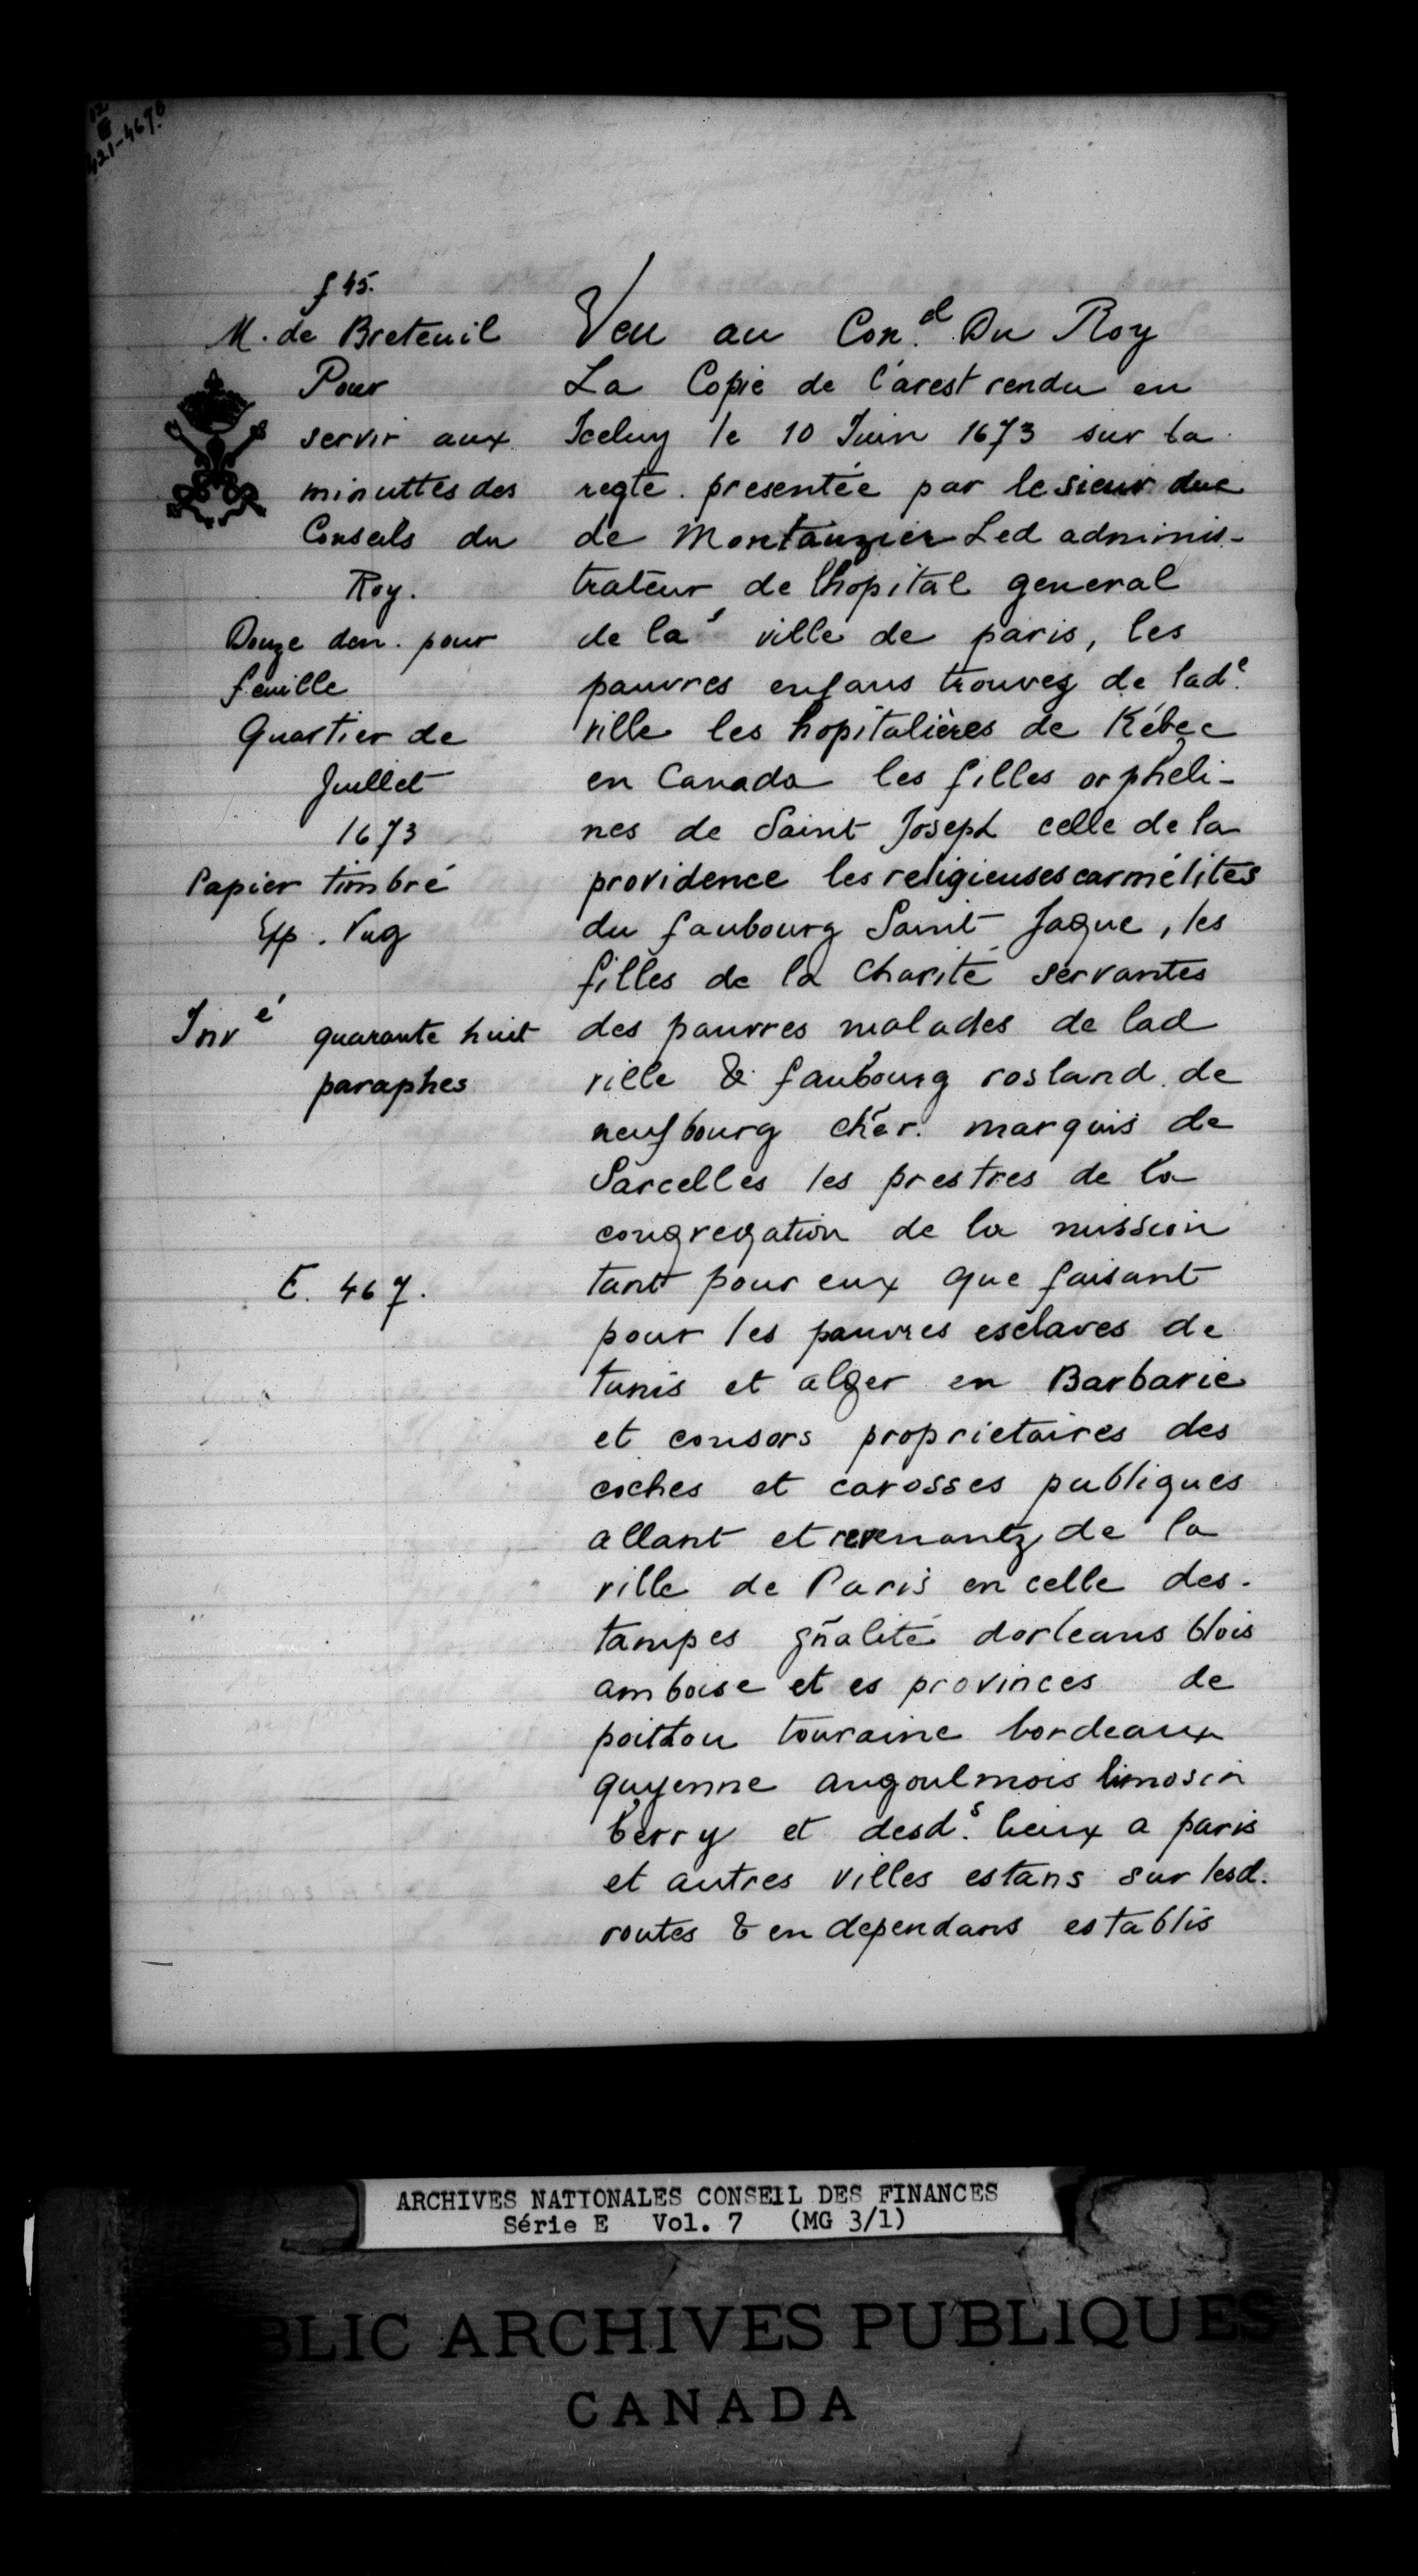 421-467
f 45.
M. de Breteuil
Pour
servir aux
minuttes des
Conseils du
Roy.
Douze den. pour
feuille
Quartier de
Juillet
1673
Papier timbré
Inv é quarante huit
paraphes
E. 467.
Veu au Con.el Du Roy
La Copie de l'arest rendu en
Iceluy le 10 Juin 1673 sur la
reqte. presentée par le sieur duc
de Montauzier Led adminis-
trateur de lhopital general
de la ville de paris, les
pauvres enfans trouvez de lad.e
ville les hopitalières de Kébec
en Canada les filles orpheli-
nes de Saint Joseph celle de la
providence les religieuses carmélites
du faubourg Saint Jaque, les
filles de la Charité servantes
des pauvres malades de lad
ville & faubourg rosland de
neufbourg cher. marquis de
Sarcelles les prestres de la
congregation de la mission
tant pour eux que faisant
pour les pauvres esclaves de
tunis et alger en Barbarie
et consors proprietaires des
coches et carosses publiques
allant et revenantz de la
ville de Paris en celle des-
tampes gñalité dorleans blois
amboise et es provinces de
poittou touraine bordeaux
guyenne angoulmois limosin
berry et desd.s lieux a paris
et autres villes estans sur lesd.
routes & en dependans establis
ARCHIVES NATIONALES CONSEIL DES FINANCES
Série E Vol. 7 (MG 3/1)
BLIC ARCHIVES PUBLIQUES
CANADA